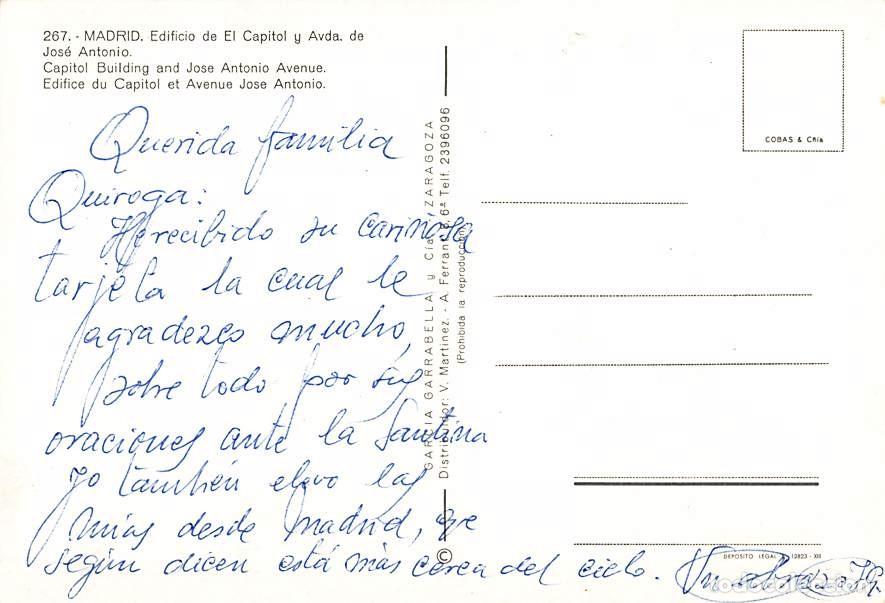 267. - MADRID. Edificio de El Capitol y Avda. de
José Antonio.
Capitol Building and Jose Antonio Avenue.
Edifice du Capitol et Avenue Jose Antonio.
Querida familia
Quiroga:
He recibido su cariñosa
tarjeta la cual le
agradezco mucho,
sobre todo por sus
oraciones ante la Santina
yo también elevo las
mias desde madrid, que
según dicen está más cerca del cielo. Un abrazo
GARCIA GARRABELLA y Cía. ZARAGOZA
Distribuidor: V. Martinez. - A. Ferrant, 6, 6ª Telf. 2396096
(Prohibida la reproducción)
©
COBAS & Cñía
DEPOSITO LEGAL 12823 - XII
todocoleccion